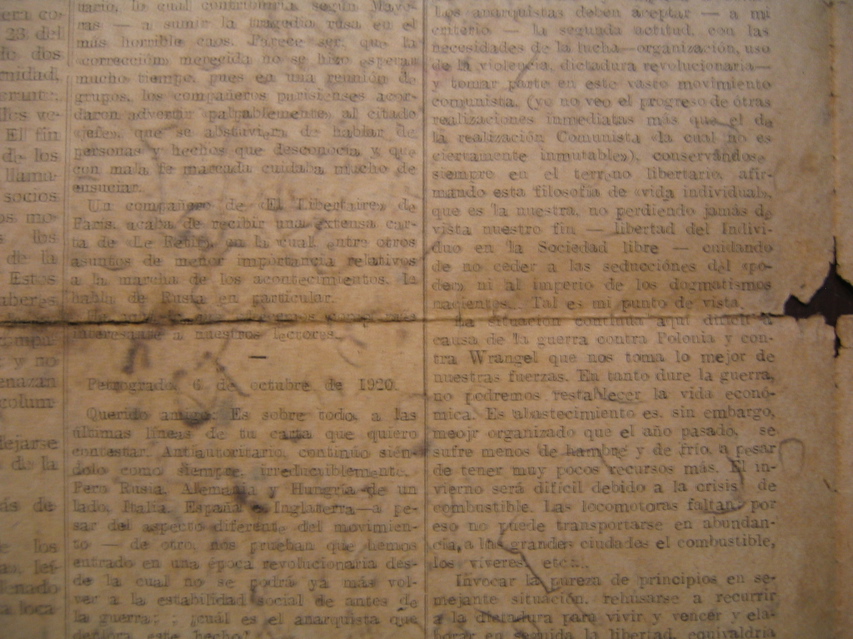 uario, lo cual contribuiría, según
ras — a sumir la tragedia rusa en el
más horrible caos. Parece ser, que la
corrección merecida no se hizo esperar
mucho tiempo, pues en una reunión de
grupos, los compañeros parisienses acor-
daron advertir palpablemente al citado
«jefe», que se abstuviera de hablar de
personas y hechos que desconocía y que
con mala fe marcada cuidaba mucho de
ensuciar.
Un compañero de «El Libertaire» de
París, acaba de recibir una extensa car-
ta de «Le Retif», en la cual, entre otros
asuntos de menor importancia relativos
a la marcha de los acontecimientos, la
habla de Rusia en particular.
interesarse a nuestros lectores.
—
Petrogrado, 6 de octubre de 1920.
Querido amigo: Es sobre todo, a las
últimas líneas de tu carta que quiero
contestar. Antiautoritario, continúo sién-
dolo como siempre, irreduciblemente.
Pero Rusia, Alemania y Hungría de un
lado, Italia, España e Inglaterra—a pe-
sar del aspecto diferente del movimien-
to — de otro, nos prueban que hemos
entrado en una época revolucionaria des-
de la cual no se podrá ya más vol-
ver a la estabilidad social de antes de
la guerra; ¿cuál es el anarquista que
deplora este hecho?
Los anarquistas deben aceptar — a mi
criterio — la segunda actitud, con las
necesidades de la lucha—organización, uso
de la violencia, dictadura revolucionaria—
y tomar parte en este vasto movimiento
comunista, (yo no veo el progreso de otras
realizaciones inmediatas más que el de
la realización Comunista «la cual no es
ciertamente inmutable»), conservándose
siempre en el terreno libertario, afir-
mando esta filosofía de «vida individual»,
que es la nuestra, no perdiendo jamás de
vista nuestro fin — libertad del Indivi-
duo en la Sociedad libre — cuidando
de no ceder a las seducciónes del «po-
der», ni al imperio de los dogmatismos
nacientes.. Tal es mi punto de vista.
La situación continúa aquí difícil a
causa de la guerra contra Polonia y con-
tra Wrangel que nos toma lo mejor de
nuestras fuerzas. En tanto dure la guerra,
no podremos restablecer la vida econó-
mica. Es abastecimiento es, sin embargo,
meojr organizado que el año pasado, se
sufre menos de hambre y de frío, a pesar
de tener muy pocos recursos más. El in-
vierno será difícil debido a la crisis de
combustible. Las locomotoras faltan, por
eso no puede transportarse en abundan-
cia, a las grandes ciudades el combustible,
los víveres, etc...
Invocar la pureza de principios en se-
mejante situación, rehusarse a recurrir
a la dictadura para vivir y vencer y ela-
borar en seguida la libertad, equivaldría